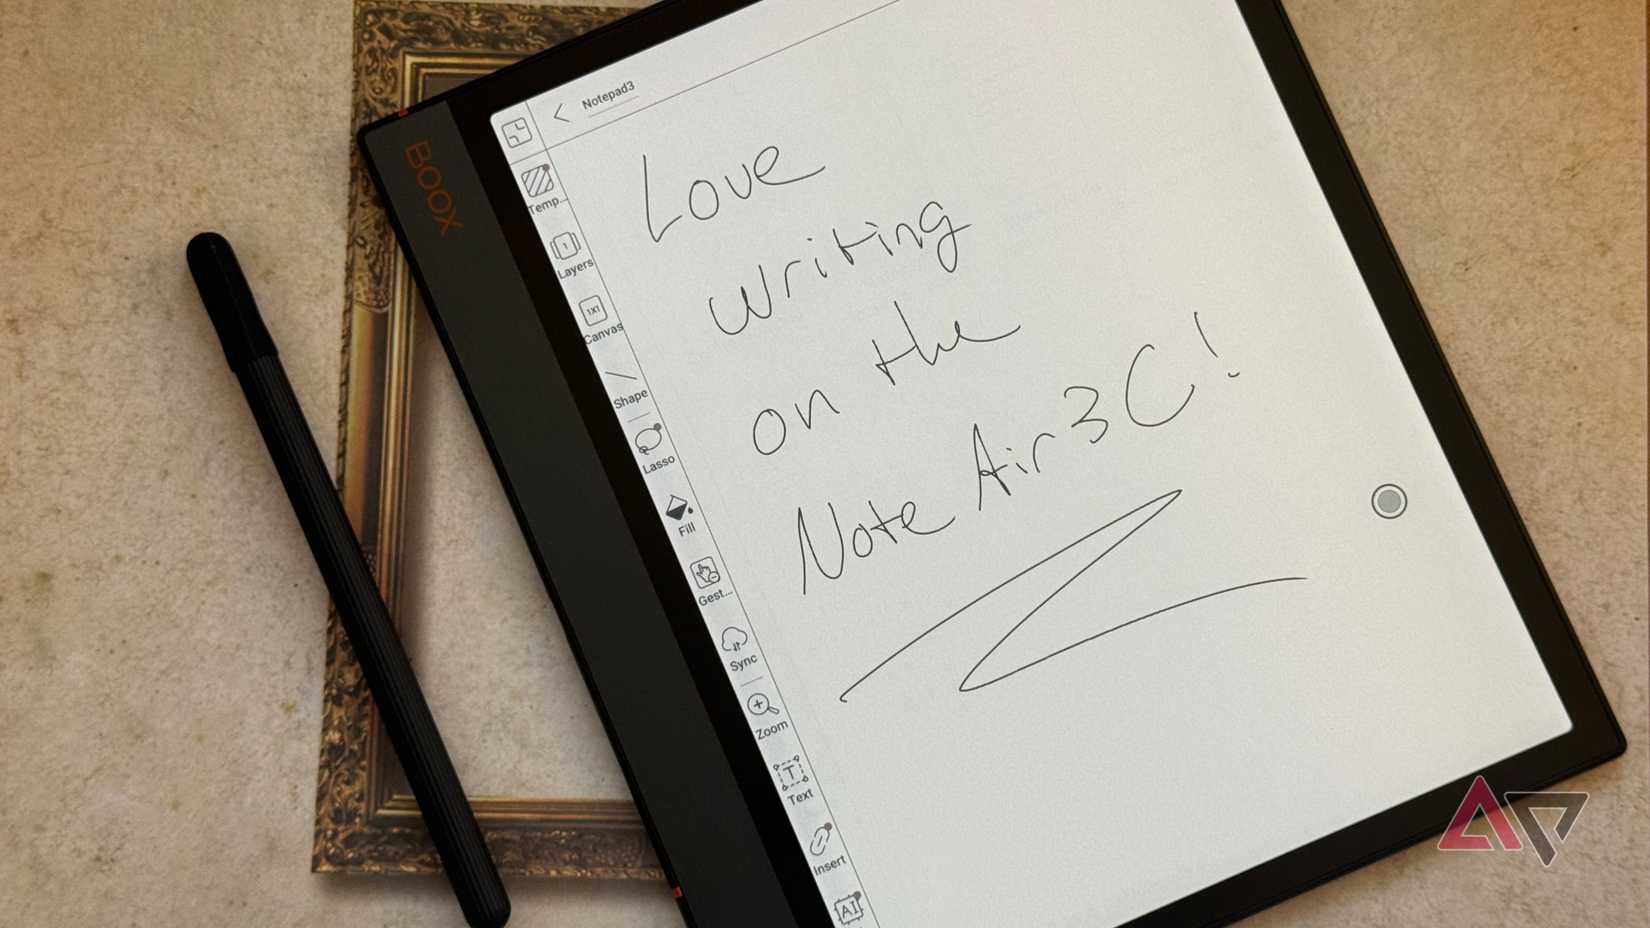 BOOX
Notepad3
Temp...
Layers
1
Canvas
1X1
Shape
Lasso
Fill
Gest...
Sync
Zoom
Text
T
Insert
AI
Love
Writing
on the
Note Air 3 C!
AP